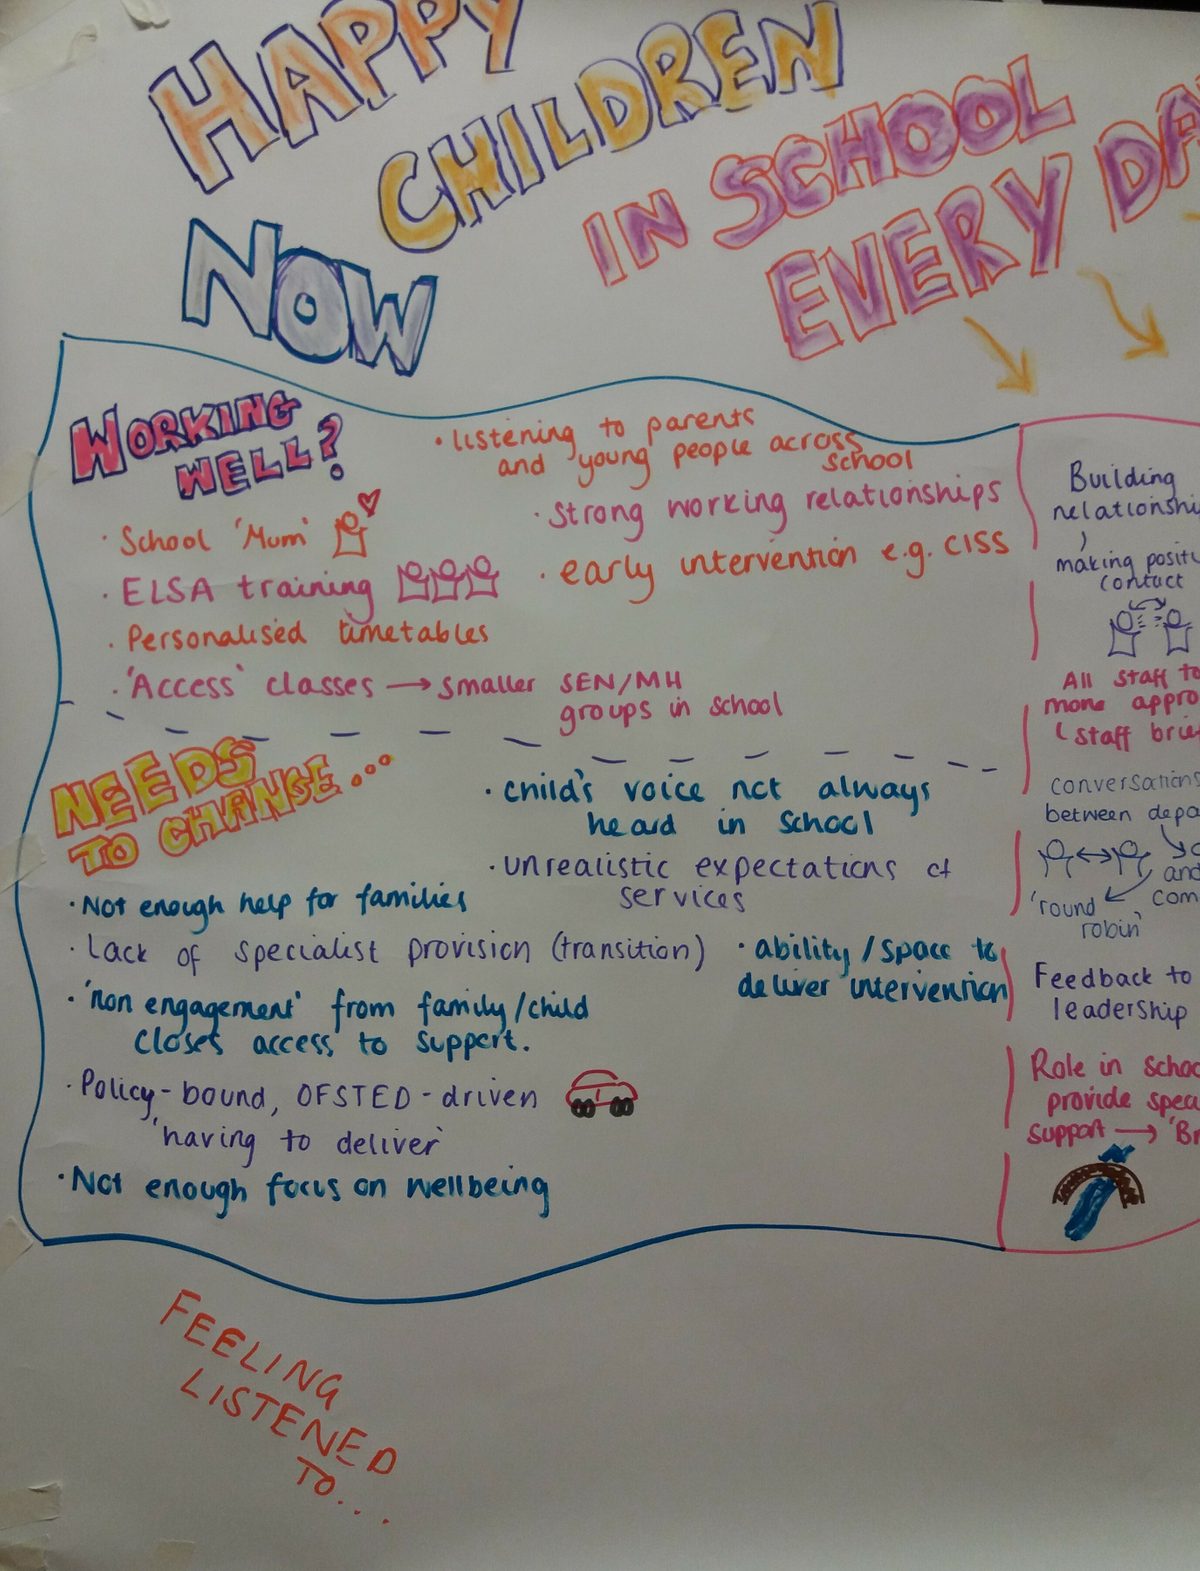 HAPPY
CHILDREN
IN SCHOOL
EVERY
NOW
WORKING
WELL?
· School 'Mum'
· ELSA training
· Personalised timetables
· 'Access' classes → smaller SEN/MH
groups in school
· listening to parents
and young people across
school
· Strong working relationships
· early intervention e.g. CISS
NEEDS
TO CHANGE...
· child's voice not always
heard in school
· unrealistic expectations of
services
· Not enough help for families
· Lack of specialist provision (transition)
· ability/space to
deliver intervention
· 'non engagement' from family/child
closes access to support.
· Policy-bound, OFSTED-driven
'having to deliver'
· Not enough focus on wellbeing
Building
making
contact
All staff to
more
(staff
conversations
between
and
'round
robin'
Feedback to
leadership
Role in
provide
support →
FEELING
LISTENED
TO...